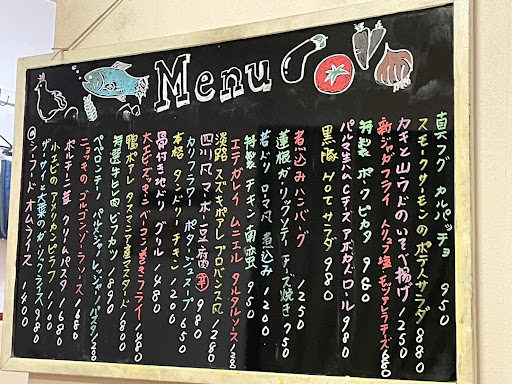 Menu
真フグ カルパッチョ 950
スモークサーモンのポテトサラダ 880
カキと山ウドのいそべ揚げ 1250
新ジャガフライ トリュフ塩 モッツァレラチーズ 680
特製 ポークピカタ 980
パルマ生ハムチーズ アボカドロール 980
黒豚 HOTサラダ 980
煮込みハンバーグ 1250
蓮根ガーリックソテー チーズ焼き 750
若ドリ ローマ風 煮込み 1200
特製 チキン南蛮 950
エテガレイ ムニエル タルタルソース 1280
淡路 スズキポアレ プロバンス風
四川風 マーボー豆腐 辛 980
カリフラワー ポタージュスープ 650
本格 タンドリーチキン 1200
骨付き地ドリグリル 1480
大エビ ズッキーニ ベーコン巻きフライ 1480
鴨ポアレ タスマニア産マスタード 1680
特選 牛ヒレ肉 ビフカツ 1890
ペペロンチーノ パルメジャーレッジャーノ パスタ 1280
ニョッキのゴルゴンゾーラソース 1680
ポルチーニ茸 クリームパスタ 1680
小エビのアメリカンピラフ 1180
ザーサイと大葉のガーリックライス 980
シーフード オムライス 1400